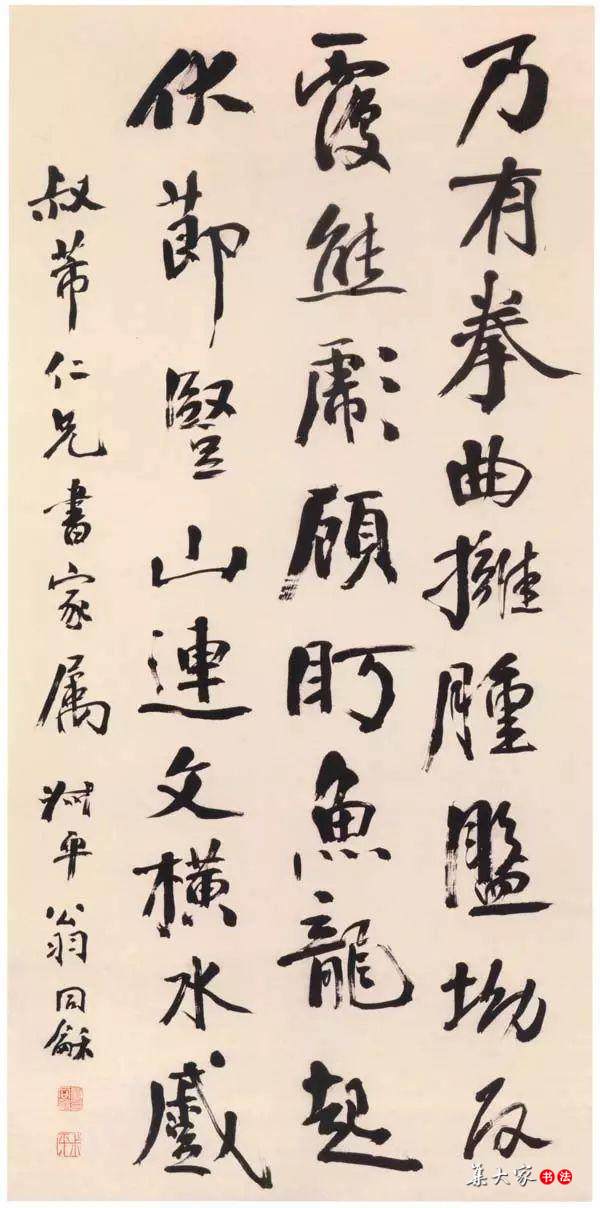 乃有拳曲擁腫盤坳反
覆熊彪顧眄魚龍起
伏節豎山連文橫水蹙
叔芾仁兄書家属 叔平翁同龢
集大家书法